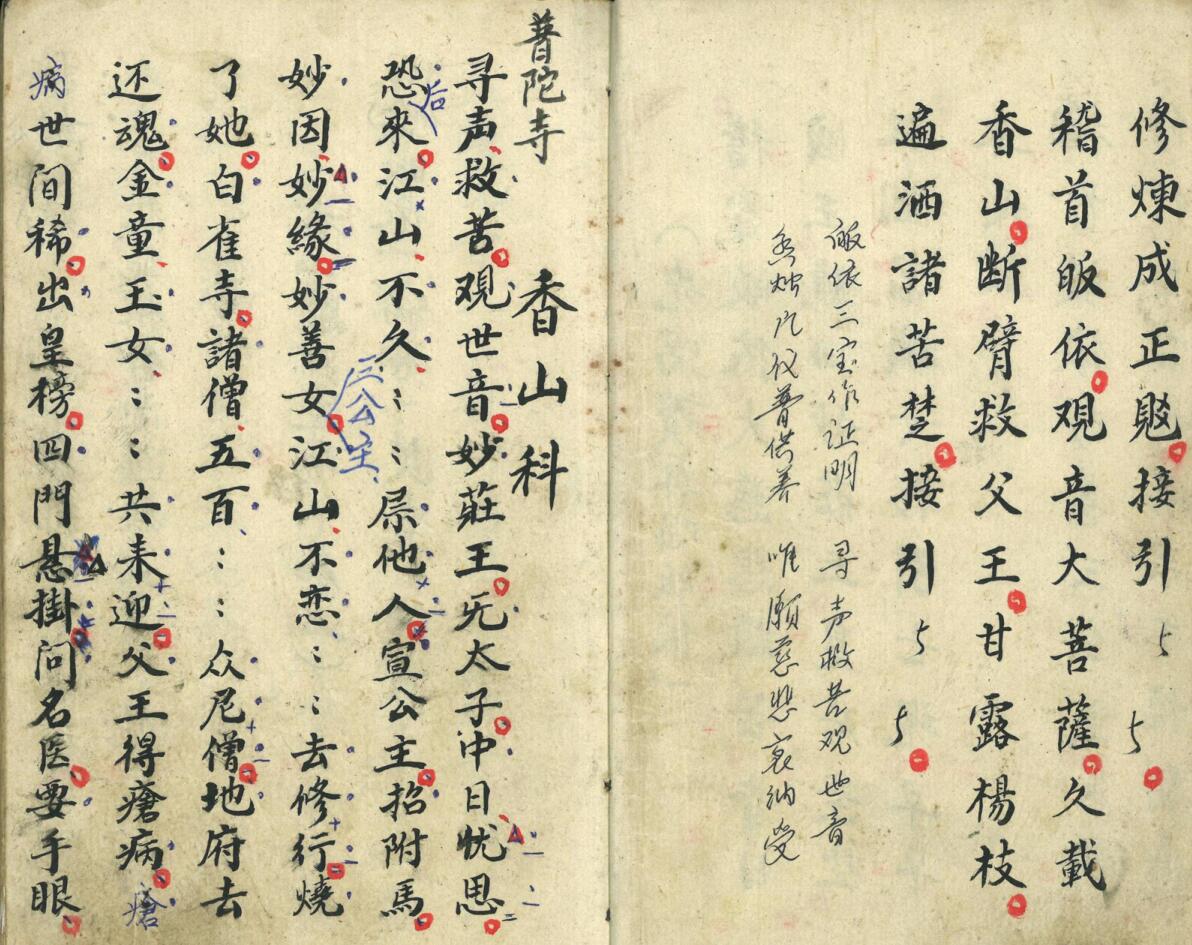 修煉成正覐接引ㄣㄣ
稽首皈依观音大菩薩久載
香山断臂救父王甘露楊枝
遍洒諸苦楚接引ㄣㄣ
皈依三宝作证明 寻声救苦观世音
香烛凡仪普供养 唯願慈悲哀纳受
普陀寺 香山科
寻声救苦观世音妙莊王旡太子中日忧思
恐來江山不久：：屌他人宣公主招附馬
后
妙因妙緣妙善女江山不恋：：去修行燒
三公主
了她白雀寺諸僧五百：：众尼僧地府去
还魂金童玉女：：共来迎父王得瘡病
瘡
病世间稀出皇榜四門悬掛问名医要手眼